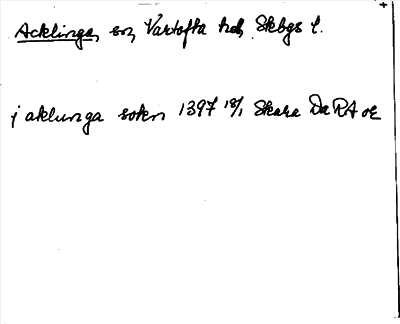 Acklinga, sn, Vartofta hd, Skbgs l.
j aklunga sokn 1397 18/1 Skara DaRA oE